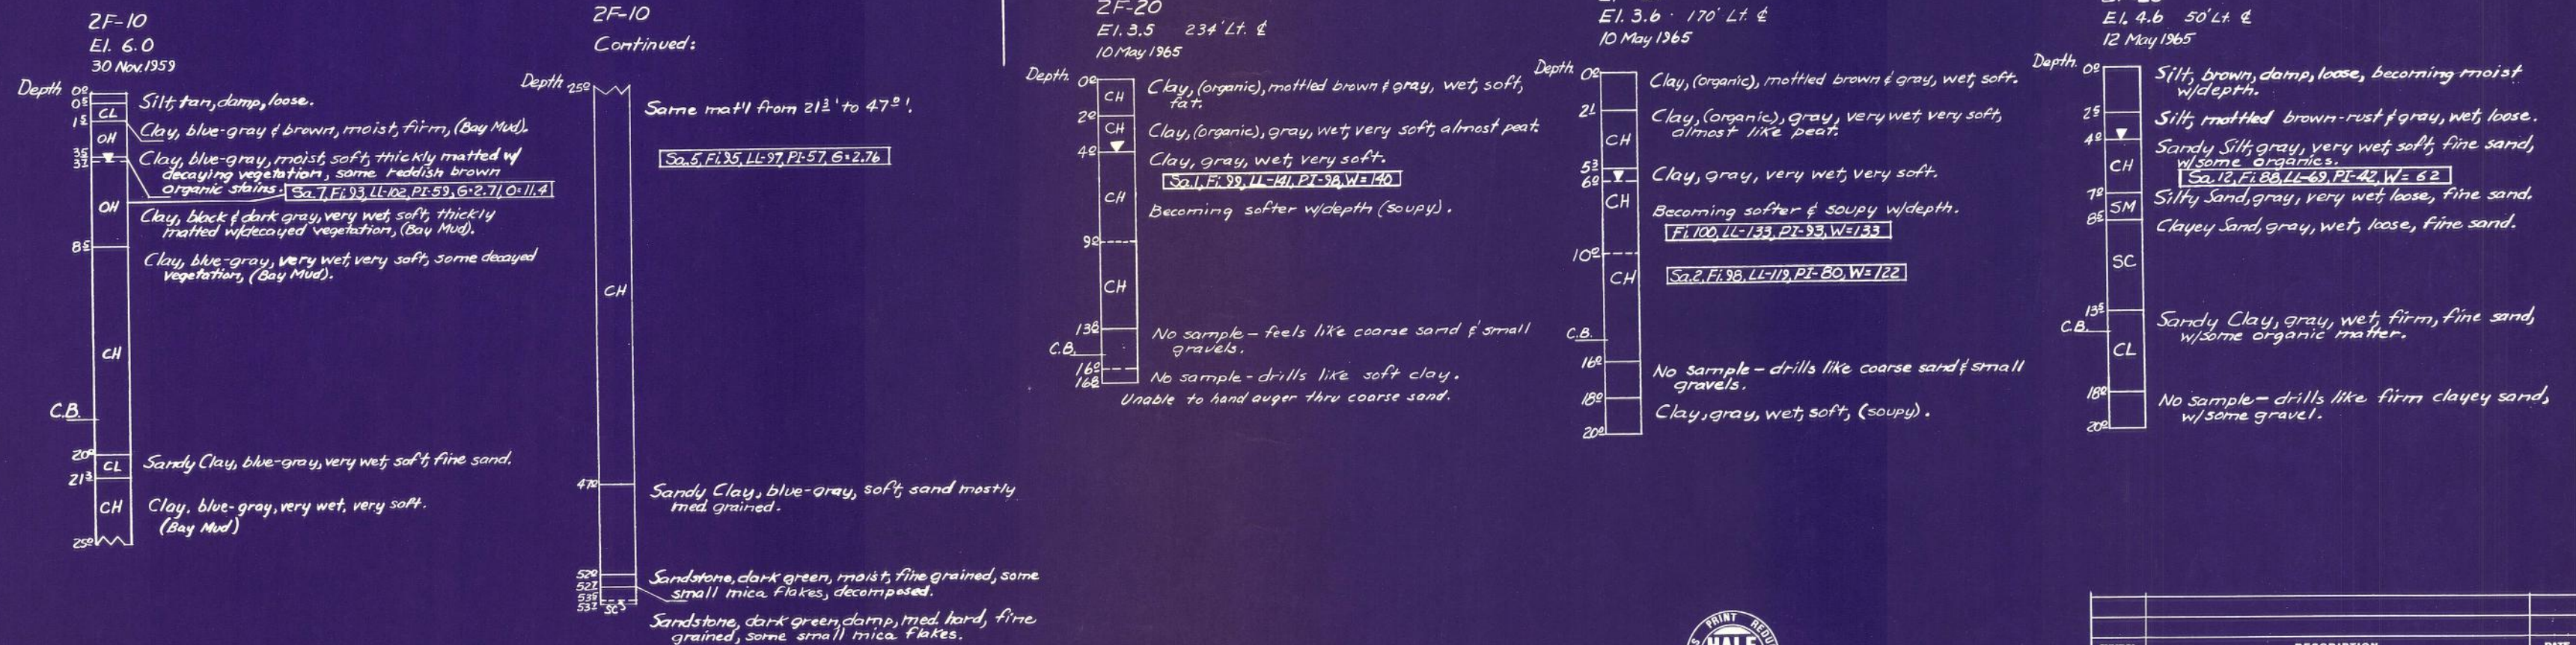 2F-10
El. 6.0
30 Nov. 1959
Depth
0.0
0.5
CL
1.5
OH
3.5
3.7
OH
8.5
CH
C.B.
20.0
CL
21.3
CH
25.0
Silt, tan, damp, loose.
Clay, blue-gray & brown, moist, firm, (Bay Mud).
Clay, blue-gray, moist, soft, thickly matted w/
decaying vegetation, some reddish brown
organic stains. Sa.7, Fi.93, LL-102, PI-59, G=2.71, O=11.4
Clay, black & dark gray, very wet, soft, thickly
matted w/decayed vegetation, (Bay Mud).
Clay, blue-gray, very wet, very soft, some decayed
vegetation, (Bay Mud).
Sandy Clay, blue-gray, very wet, soft, fine sand.
Clay, blue-gray, very wet, very soft.
(Bay Mud)
2F-10
Continued:
Depth
25.0
CH
47.0
52.0
52.7
SC
53.7
Same mat'l from 21.3' to 47.0'.
Sa.5, Fi.95, LL-97, PI-57, G=2.76
Sandy Clay, blue-gray, soft, sand mostly
med. grained.
Sandstone, dark green, moist, fine grained, some
small mica flakes, decomposed.
Sandstone, dark green, damp, med. hard, fine
grained, some small mica flakes.
2F-20
El. 3.5 234' Lt. ℄
10 May 1965
Depth
0.0
CH
2.0
CH
4.0
CH
9.0
CH
C.B.
16.0
Clay, (organic), mottled brown & gray, wet, soft,
fat.
Clay, (organic), gray, wet, very soft, almost peat.
Clay, gray, wet, very soft.
Sa.1, Fi.99, LL-141, PI-98, W=140
Becoming softer w/depth (soupy).
No sample — feels like coarse sand & small
gravels.
No sample - drills like soft clay.
Unable to hand auger thru coarse sand.
El. 3.6 170' Lt. ℄
10 May 1965
Depth
0.0
2.1
CH
5.3
6.0
CH
10.0
CH
C.B.
16.0
18.0
20.0
Clay, (organic), mottled brown & gray, wet, soft.
Clay, (organic), gray, very wet, very soft,
almost like peat.
Clay, gray, very wet, very soft.
Becoming softer & soupy w/depth.
Fi.100, LL-133, PI-93, W=133
Sa.2, Fi.98, LL-119, PI-80, W=122
No sample — drills like coarse sand & small
gravels.
Clay, gray, wet, soft, (soupy).
El. 4.6 50' Lt. ℄
12 May 1965
Depth
0.0
2.5
4.0
CH
7.0
SM
8.5
SC
13.5
C.B.
CL
18.0
20.0
Silt, brown, damp, loose, becoming moist
w/depth.
Silt, mottled brown-rust & gray, wet, loose.
Sandy Silt, gray, very wet, soft, fine sand,
w/some organics.
Sa.12, Fi.88, LL-69, PI-42, W=62
Silty Sand, gray, very wet, loose, fine sand.
Clayey Sand, gray, wet, loose, fine sand.
Sandy Clay, gray, wet, firm, fine sand,
w/some organic matter.
No sample — drills like firm clayey sand,
w/some gravel.
PRINT
HALF
DESCRIPTION
DATE